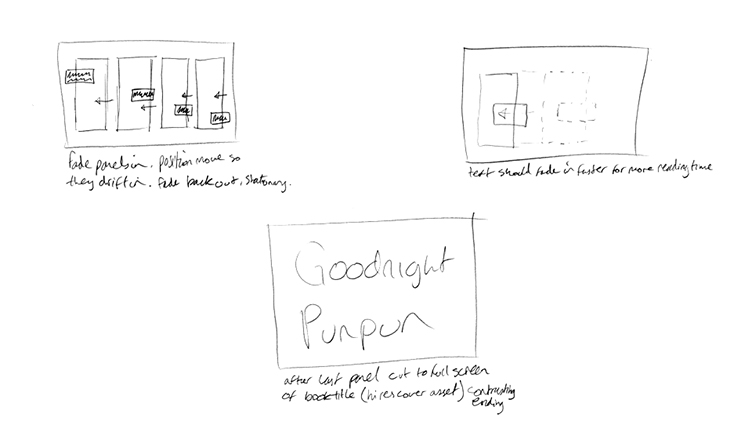 fade panels in. position move so
they drift in. fade back out, stationary.
text should fade in faster for more reading time
Goodnight
Punpun
after last panel cut to full screen
of book title (hi res cover asset) contrasting
ending